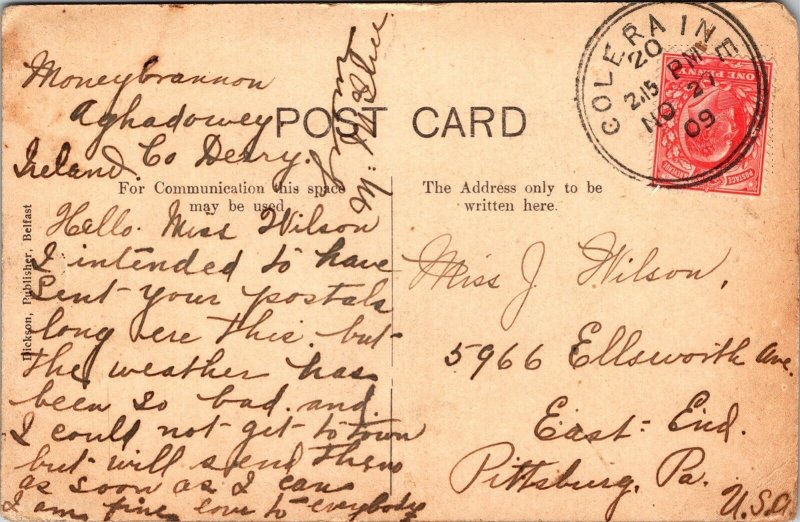 Moneybrannon
Aghadowey
Ireland. Co Derry.
from
M: McShee
POST CARD
For Communication this space
may be used
The Address only to be
written here.
Hello. Miss Wilson
I intended to have
sent your postals
long ere this. but
the weather has
been so bad. and.
I could not get to town
but will send them
as soon as I can
I am fine love to everybody
Miss J Wilson,
5966 Ellsworth Ave.
East: End.
Pittsburg, Pa.
U.S.A.
Dickson, Publisher, Belfast
COLERAINE
20
2.15 PM
NO 27
09
ONE PENNY
POSTAGE